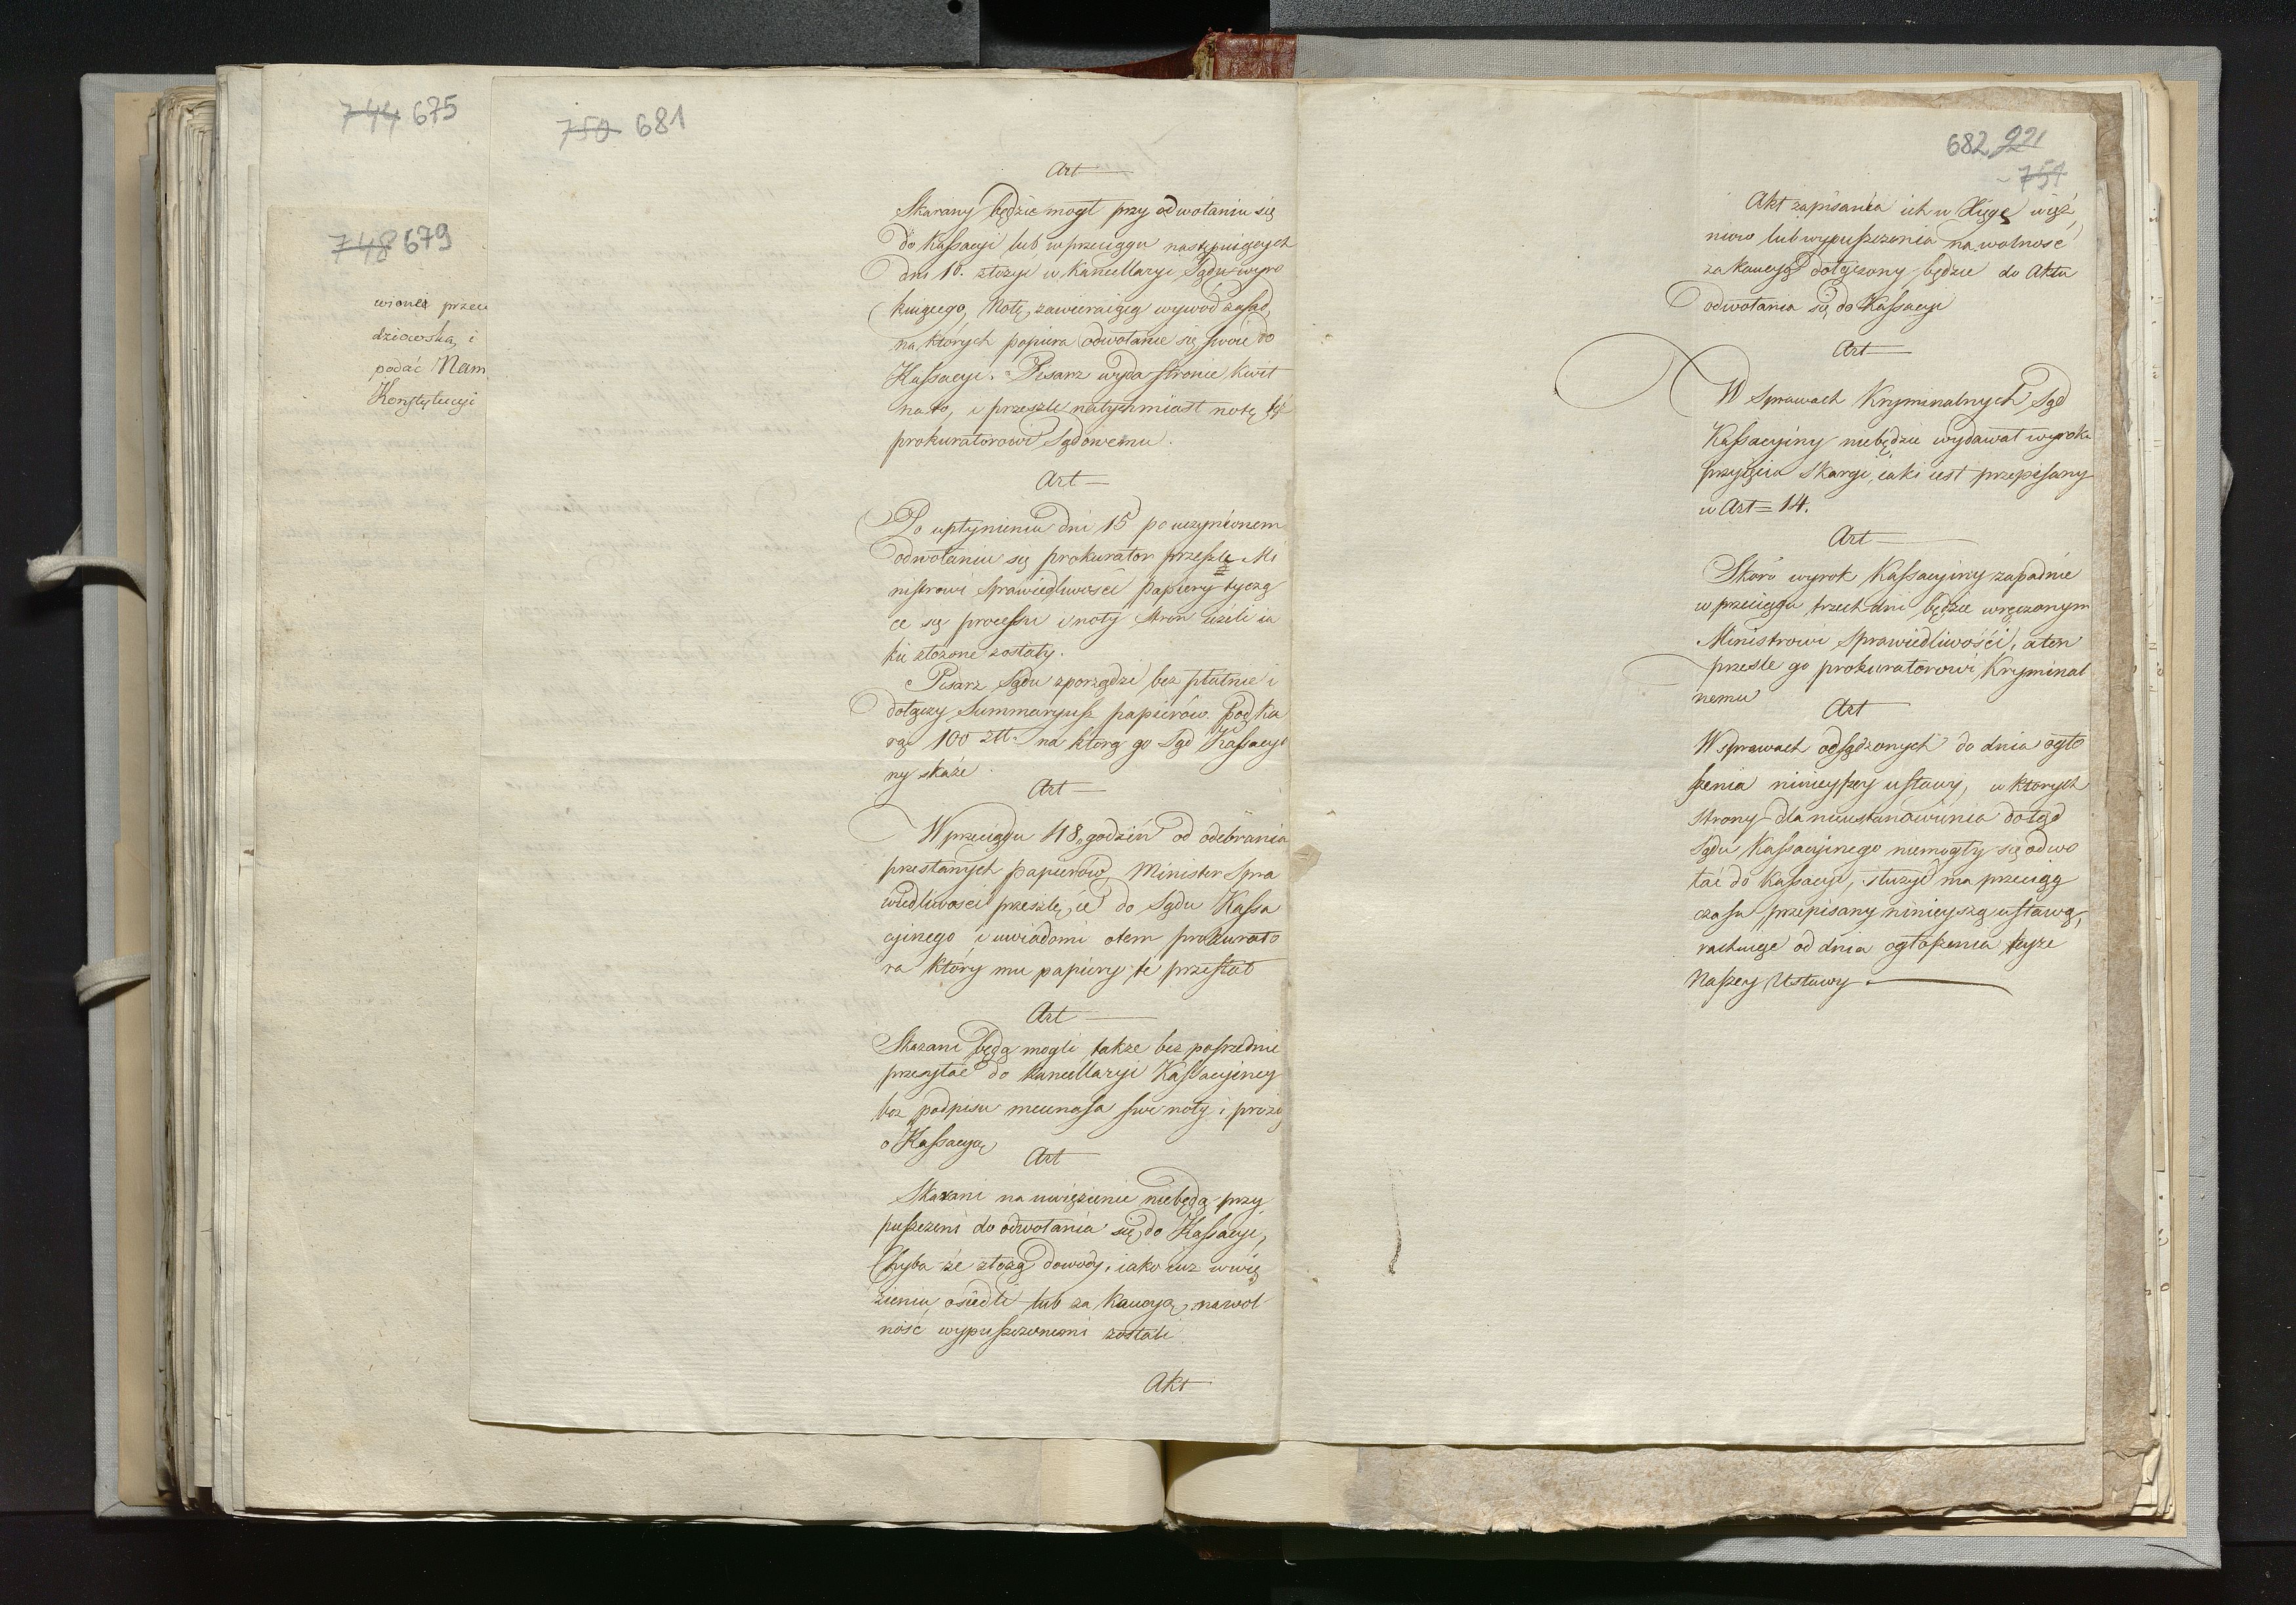 744 675
748 679
wionei przez
dziowską i
podać Nam
Konstytucyi
750 681
Art
Skarany będzie mogł przy odwołaniu się
do Kassacyi lub w przeciągu następuiących
dni 10. złożyć w Kancellaryi Sądu wyro
kuiącego, Notę, zawieraiącą wywód zasad,
na których popiera odwołanie się swoie do
Kassacyi. Pisarz wyda stronie kwit
na to, i przeszle natychmiast notę tę
prokuratorowi Sądowemu.
Art
Po upłynieniu dni 15 po uczynionem
odwołaniu się prokurator przeszle Mi
nistrowi Sprawiedliwości papiery tyczą
ce się processu i noty stron ieżeli ia
kie złożone zostały.
Pisarz Sądu zporządzi bez płatnie i
dołączy Summaryusz papierów pod ka
rą 100 złł. na którą go Sąd Kassacyi
ny skaże.
Art
W przeciągu 48. godzin od odebrania
przesłanych papierów, Minister Spra
wiedliwości przeszle ie do Sądu Kassa
cyinego i uwiadomi o tem prokurato
ra który mu papiery te przesłał
Art
Skazani będą mogli także bez pośrednie
przesyłać do kancellaryi Kassacyiney
bez podpisu mecenasa swe noty i proźby
o Kassacyą
Art
Skazani na uwięzienie niebędą przy
puszczeni do odwołania się do Kassacyi,
Chyba że złożą dowody, iako iuz w wię
zieniu osiedli lub za kaucyą na wol
ność wypuszczonemi zostali.
Akt
682 221
751
Akt zapisania ich w Xięgę więź
niow lub wypuszczenia na wolność
za kaucyą dołączony będzie do Aktu
odwołania się do Kassacyi
Art
W Sprawach Kryminalnych Sąd
Kassacyiny niebędzie wydawał wyroku
przyięcia Skargi, iaki iest przepisany
w Art = 14.
Art
Skoro wyrok Kassacyiny zapadnie
w przeciągu trzech dni będzie wręczonym
Ministrowi Sprawiedliwości, a ten
przesle go prokuratorowi Kryminal
nemu
Art
W sprawach odsądzonych do dnia ogło
szenia ninieyszey ustawy, w których
strony dla nieustanowienia dotąd
Sądu Kassacyinego niemogły się odwo
łać do Kassacyi, służyć ma przeciąg
czasu przepisany ninieyszą ustawą,
rachuiąc od dnia ogłoszenia teyże
Naszey Ustawy